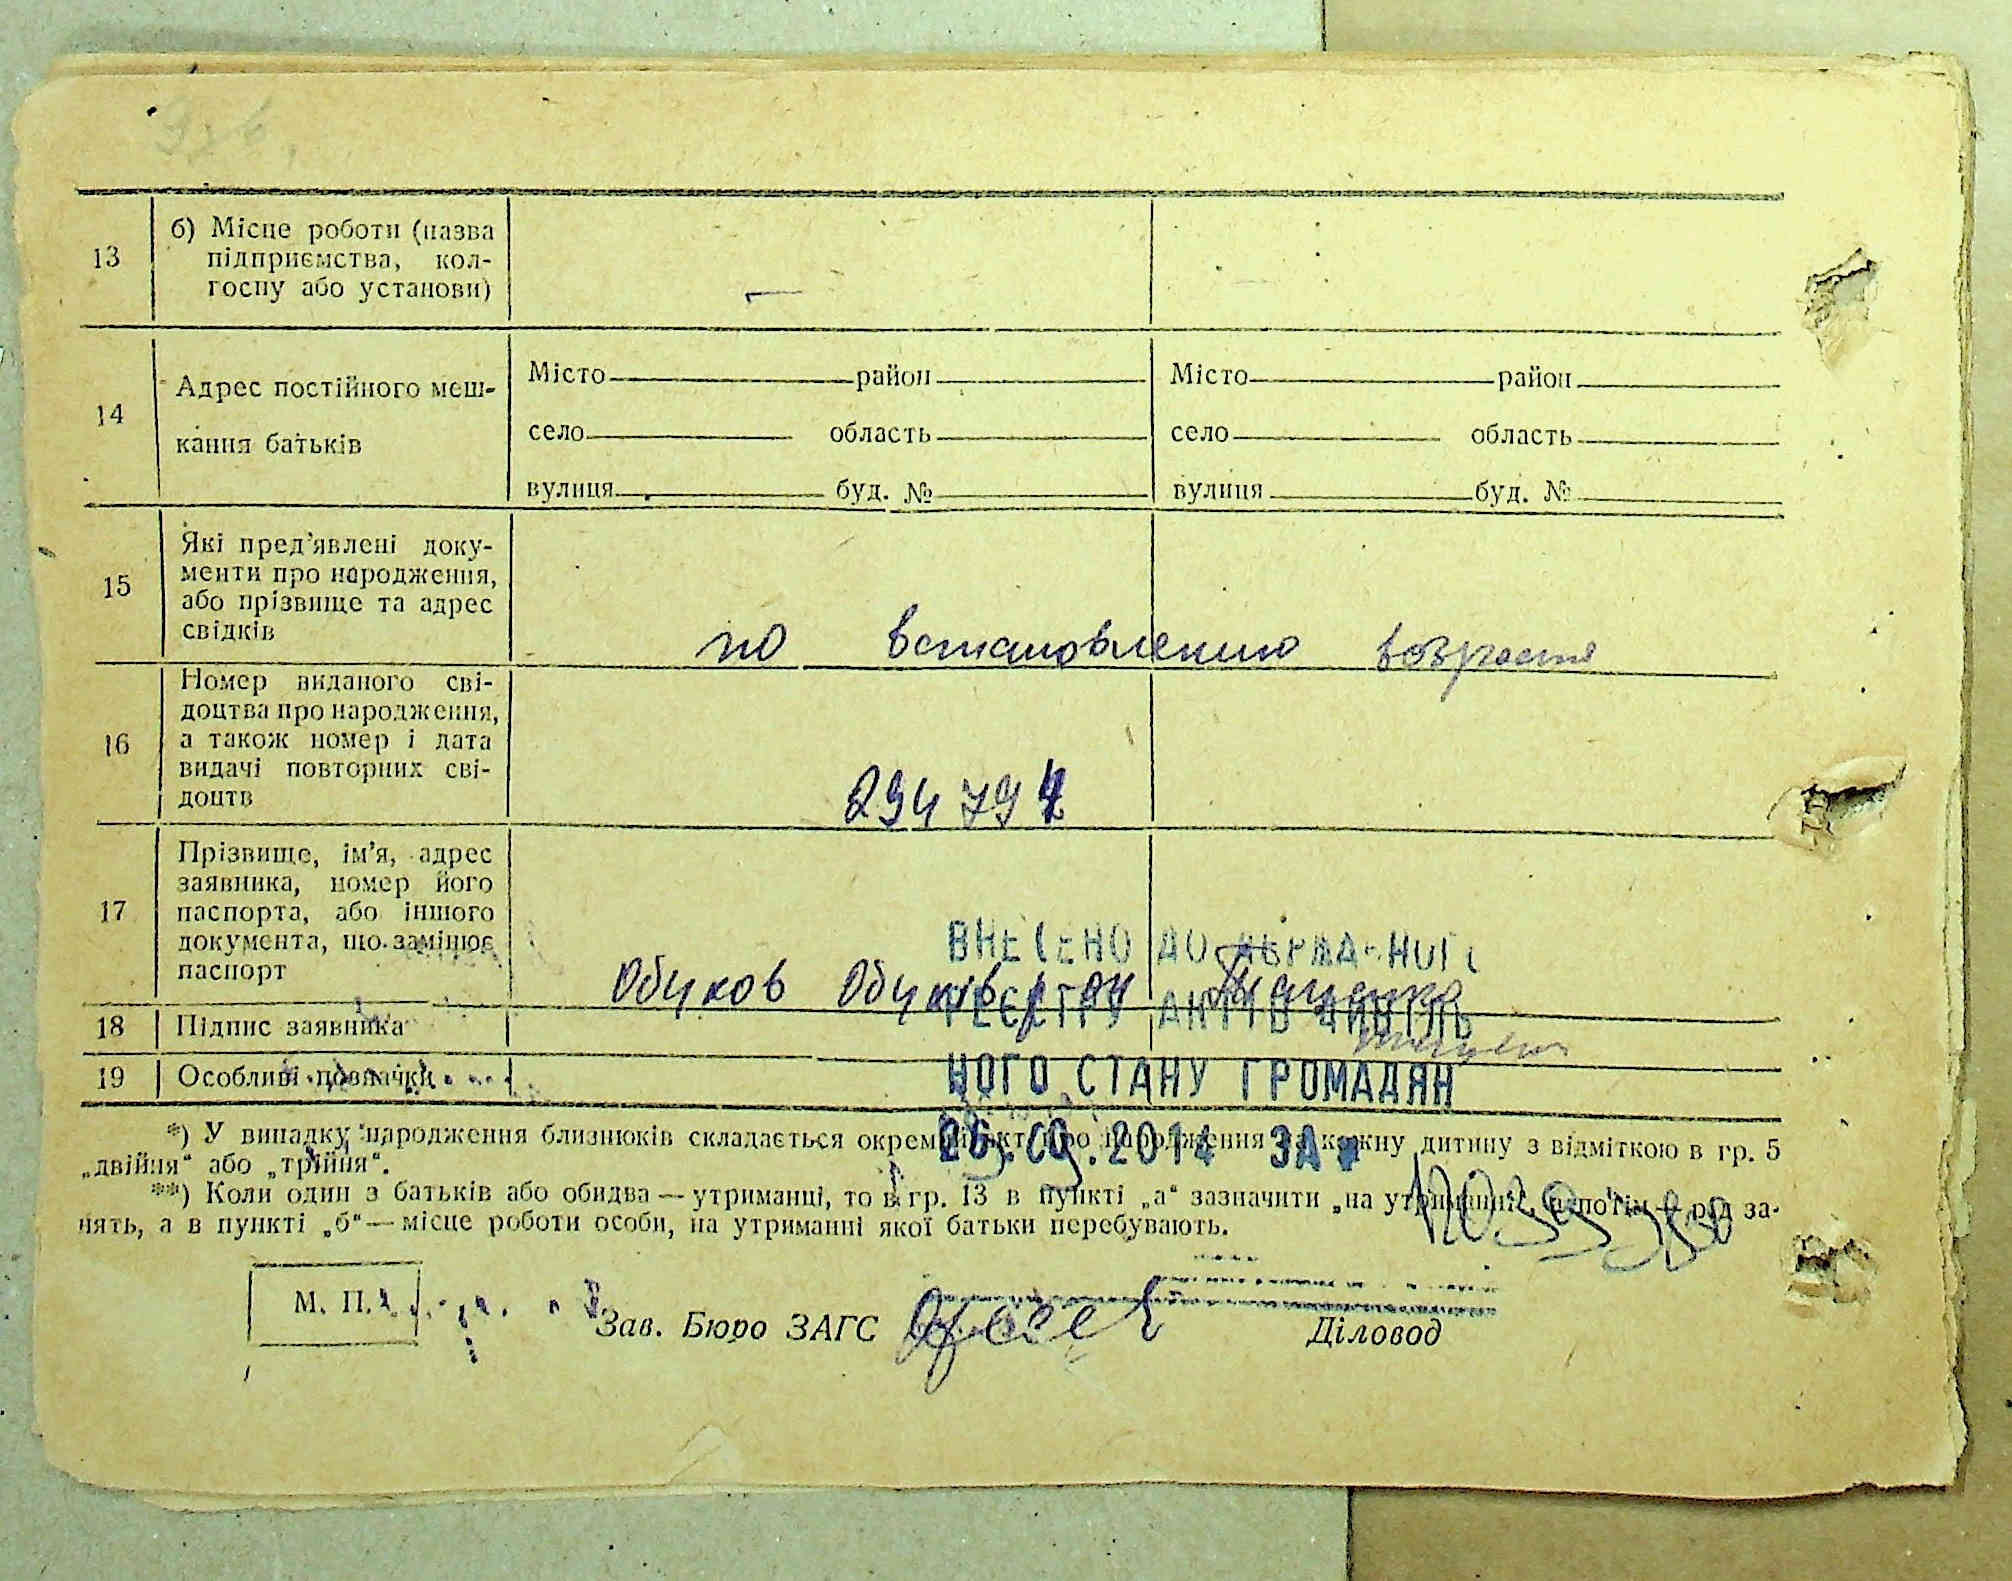 13
б) Місце роботи (назва
підприємства, кол-
госпу або установи)
—
14
Адрес постійного меш-
кання батьків
Місто район
село область
вулиця буд. №
Місто район
село область
вулиця буд. №
15
Які пред'явлені доку-
менти про народження,
або прізвище та адрес
свідків
по встановлению возраста
16
Номер виданого сві-
доцтва про народження,
а також номер і дата
видачі повторних сві-
доцтв
294 79
17
Прізвище, ім'я, адрес
заявника, номер його
паспорта, або іншого
документа, що замінює
паспорт
18
Підпис заявника
19
Особливі позначки
ВНЕСЕНО ДО ДЕРЖАВНОГО
РЕЄСТРУ АКТІВ ЦИВІЛЬ
НОГО СТАНУ ГРОМАДЯН
26.09.2014 ЗА №
*) У випадку народження близнюків складається окремий акт про народження на кожну дитину з відміткою в гр. 5
„двійня“ або „трійня“.
**) Коли один з батьків або обидва — утриманці, то в гр. 13 в пункті „а“ зазначити „на утриманні“, а потім — рід за-
нять, а в пункті „б“ — місце роботи особи, на утриманні якої батьки перебувають.
М. П.
Зав. Бюро ЗАГС
Діловод